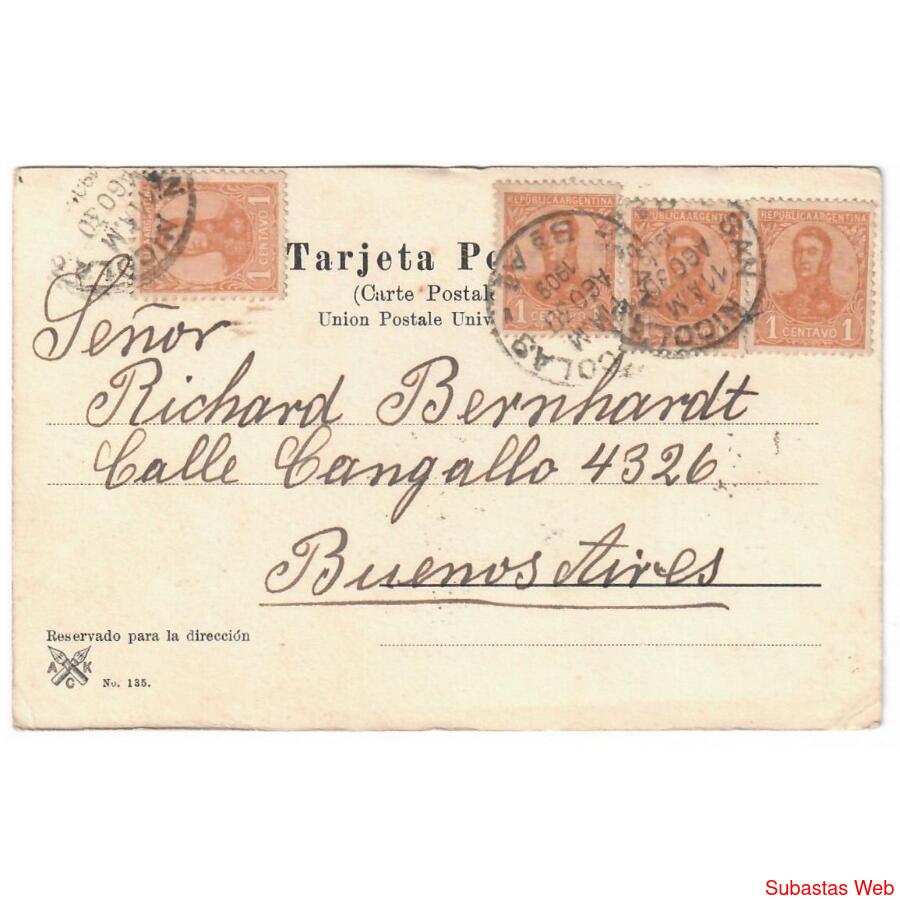 REPÚBLICA ARGENTINA
1 CENTAVO 1
REPÚBLICA ARGENTINA
1 CENTAVO 1
REPÚBLICA ARGENTINA
1 CENTAVO 1
1 CENTAVO 1
SAN NICOLAS
AGO 30
11 AM
Bs As
1909
AGO 30
Tarjeta Po
(Carte Postale
Union Postale Univ
Señor
Richard Bernhardt
Calle Cangallo 4326
Buenos Aires
Reservado para la dirección
A K
C
No. 135.
Subastas Web